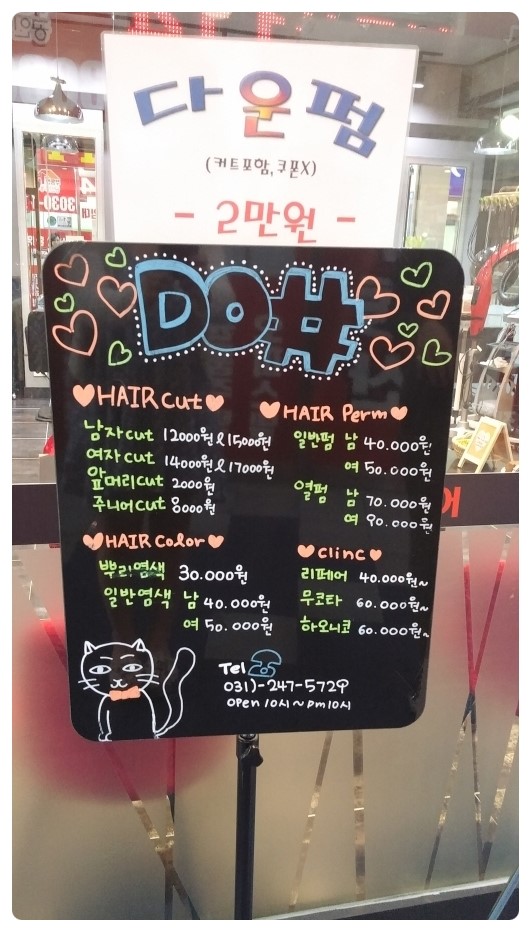 다운펌
(커트포함, 쿠폰X)
- 2만원 -
DO#
HAIR Cut
남자cut 12000원 & 15000원
여자cut 14000원 & 17000원
앞머리cut 2000원
주니어cut 8000원
HAIR Perm
일반펌 남 40.000원
여 50.000원
열펌 남 70.000원
여 90.000원
HAIR Color
뿌리염색 30.000원
일반염색 남 40.000원
여 50.000원
clinc
리페어 40.000원~
무코타 60.000원~
하오니코 60.000원~
Tel
031)-247-5729
open 10시 ~ pm10시
어
3030